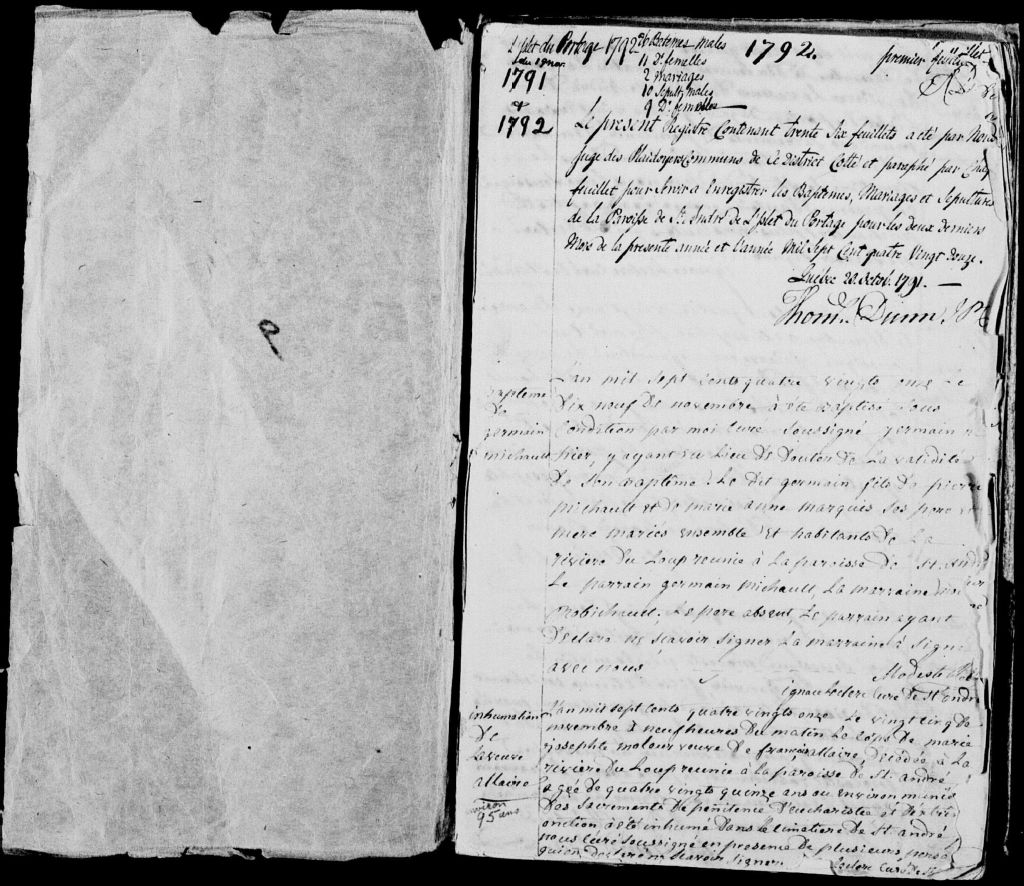 a
L'plet du Portage 1792 26 Betemes males
1792.
premier feuillet
11 Do. femelles
1791
2 mariages
10 Sepult. males
&
9 Do. femelles
1792
Le present Registre Contenant trente Six feuillets a eté par Nous
Juge des Plaidoyers Communs de Ce District Cotté et paraphé par Chaq
feuillet pour Servir a Enregistrer les Baptemes, Mariages et Sepultures
de la Paroisse de St. André de L'plet du Portage pour les deux derniers
Mois de la presente année et l'année Mil Sept Cent quatre Vingt douze.
Québec 28 Octob. 1791.
Thom. Dunn J P
Baptême
de
germain
michault
L'an mil sept cents quatre vingts onze Le
Dix neuf De novembre à été Baptisé sous
Condition par moi Curé Soussigné germain né
hier, y ayant eu Lieu De Douter De La validité
De Son Baptême: Le Dit germain fils De pierre
michault et De marie anne marquis ses pere et
mere mariés ensemble et habitants De La
riviere Du Loup reunie à La paroisse De St. André
Le parrain germain michault, La marraine
Robichault, Le pere absent, Le parrain ayant
Declaré ne Scavoir Signer La marraine à Signé
avec nous
Modeste
ignace Leclerc Curé De St. andré
inhumation
De
La veuve
allaire
environ
95 ans
L'an mil sept cents quatre vingts onze Le vingt cinq De
novembre à neuf heures Du matin Le Corps De marie
josephte veuve De françois allaire, Décédée à La
riviere Du Loup reunie à la paroisse De St. andré
agée De quatre vingts quinze ans ou environ munie
Des Sacrements De penitence D'eucharistie et D'extreme
onction, à été inhumé Dans Le Cimetiere De St. andré
nous Curé Soussigné en presence De plusieurs personnes
qui ont Declaré ne Scavoir Signer.
Leclerc Curé De St.